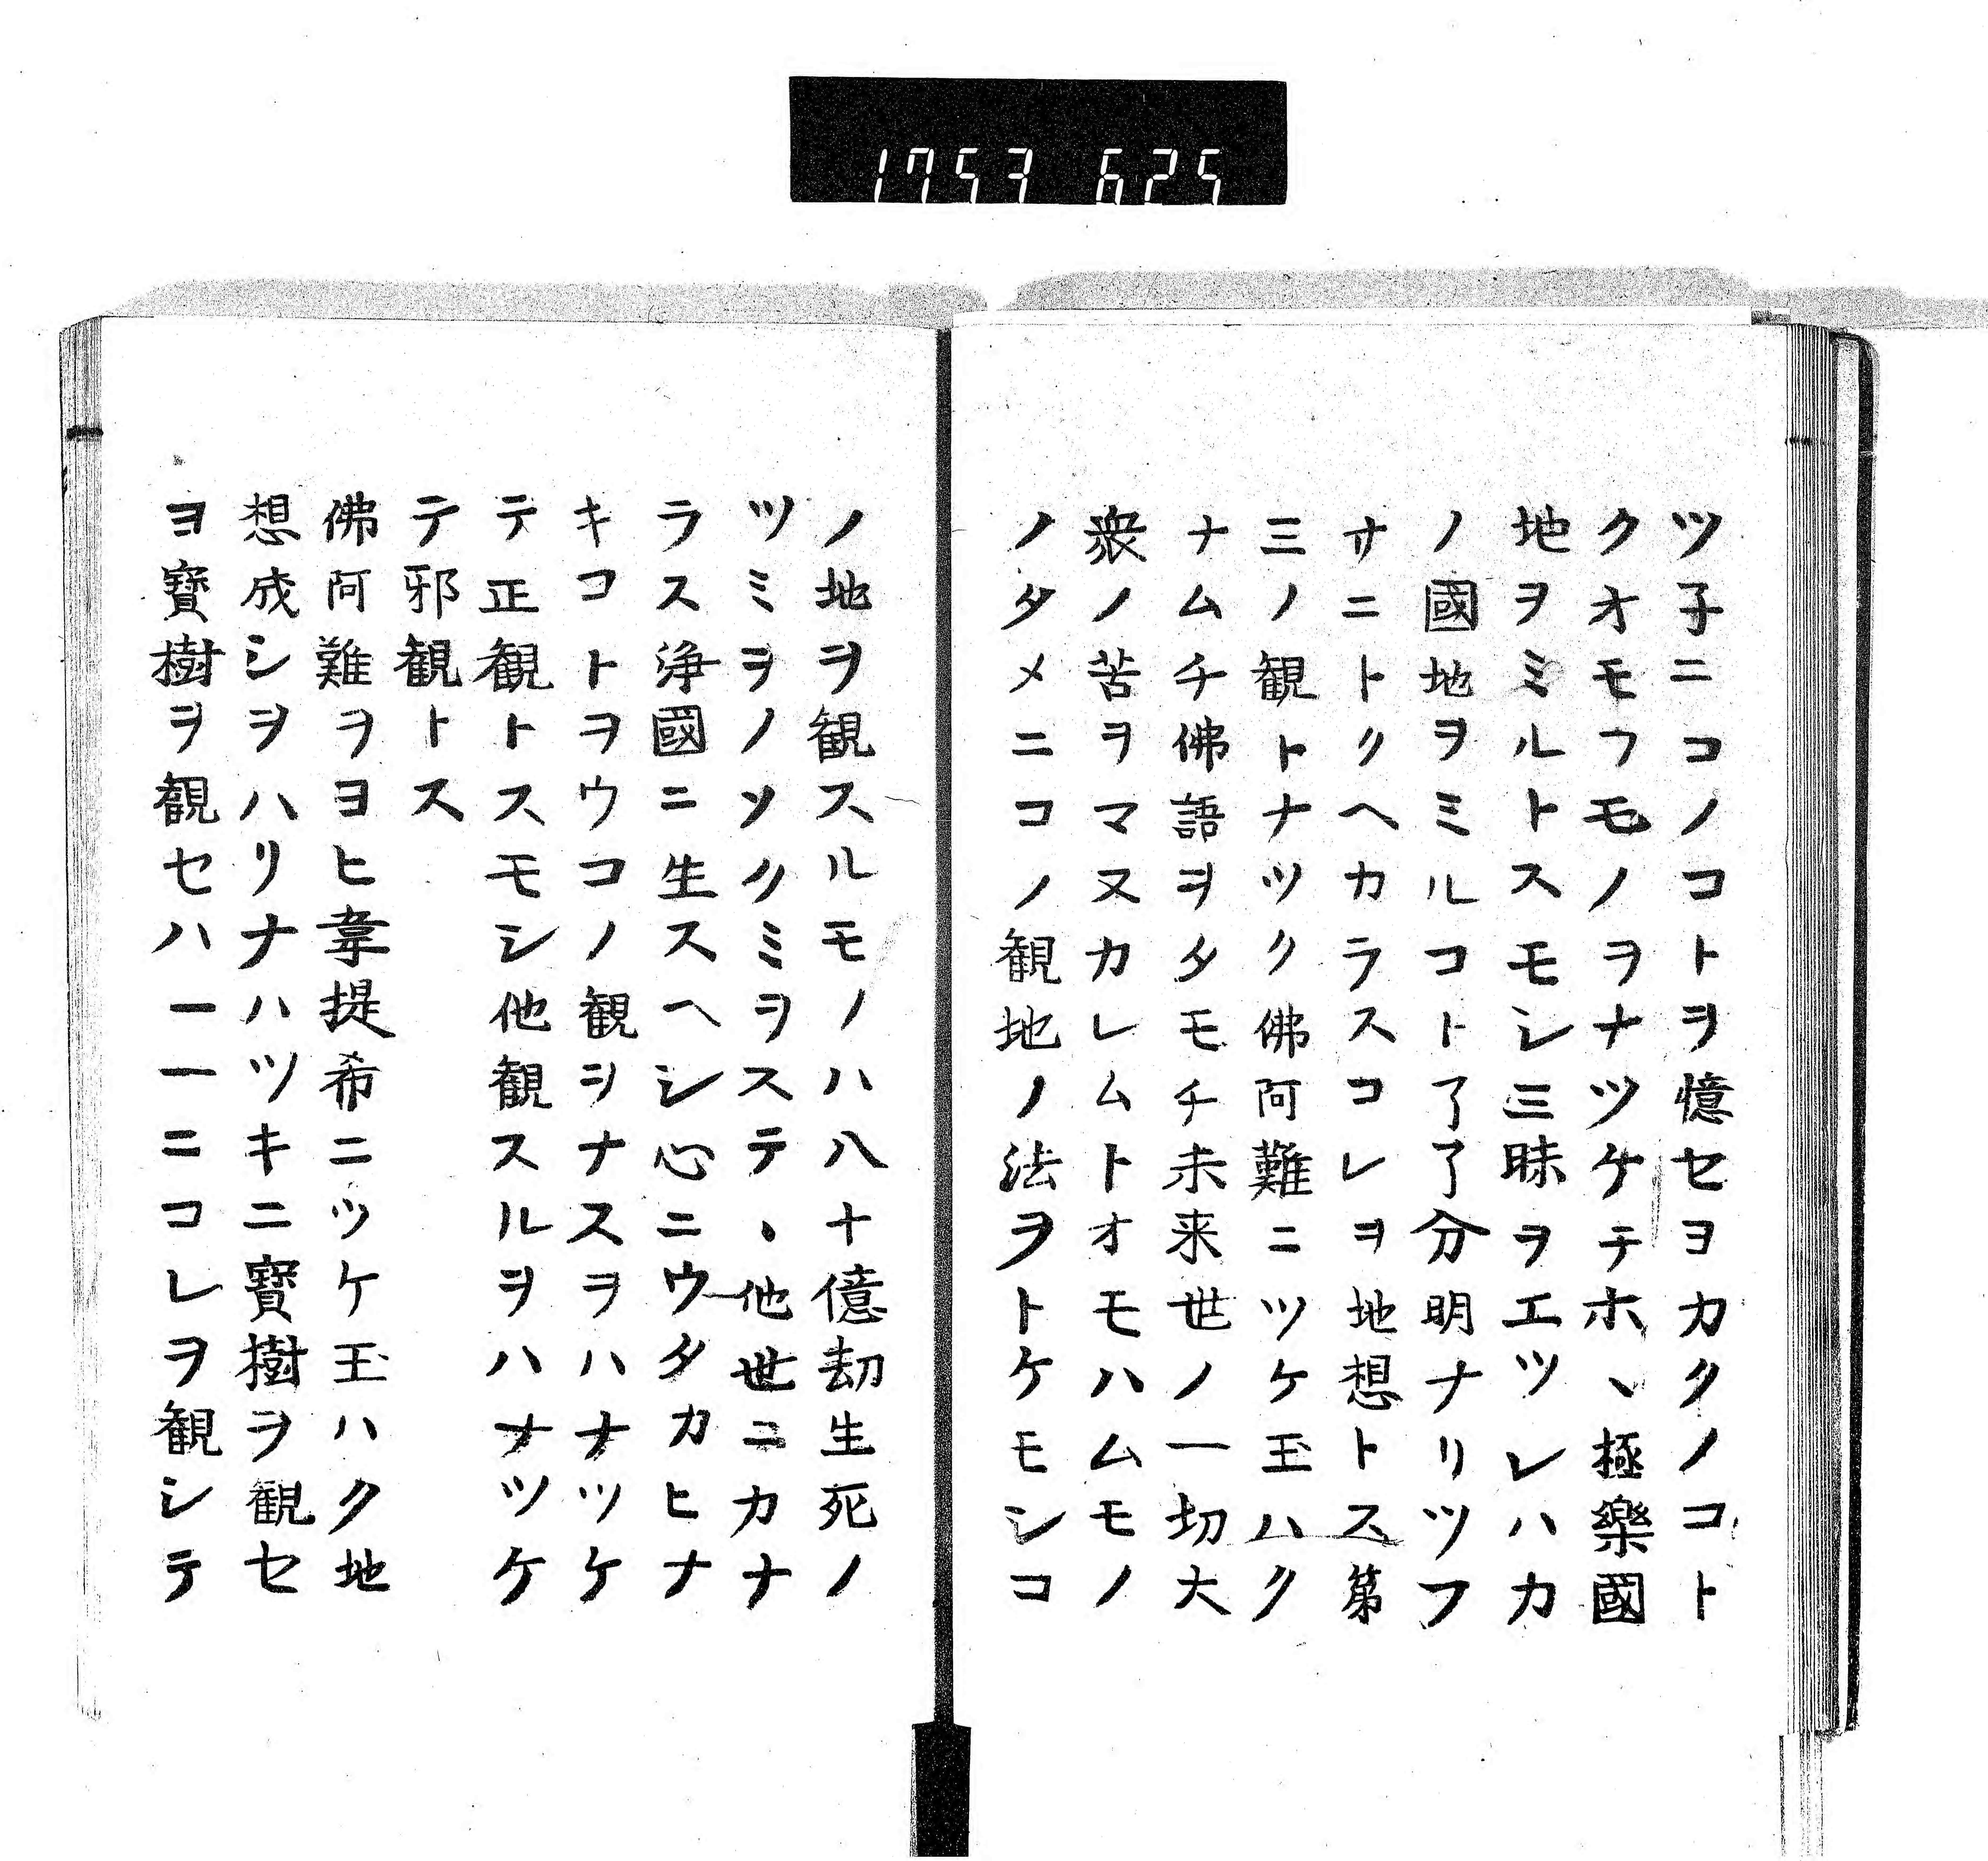 1753 625
ツ子ニコノコトヲ憶セヨカクノコト
クオモフモノヲナツケテホヽ極樂國
地ヲミルトスモシ三昧ヲエツレハカ
ノ國地ヲミルコト了了分明ナリツフ
サニトクヘカラスコレヲ地想トス第
三ノ観トナツク佛阿難ニツケ玉ハク
ナムチ佛語ヲタモチ未来世ノ一切大
衆ノ苦ヲマヌカレムトオモハムモノ
ノタメニコノ観地ノ法ヲトケモシコ
ノ地ヲ観スルモノハ八十億劫生死ノ
ツミヲノソクミヲステヽ他世ニカナ
ラス浄國ニ生スヘシ心ニウタカヒナ
キコトヲウコノ観ヲナスヲハナツケ
テ正観トスモシ他観スルヲハナツケ
テ邪観トス
佛阿難ヲヨヒ韋提希ニツケ玉ハク地
想成シヲハリナハツキニ寳樹ヲ観セ
ヨ寳樹ヲ観セハ一一ニコレヲ観シテ